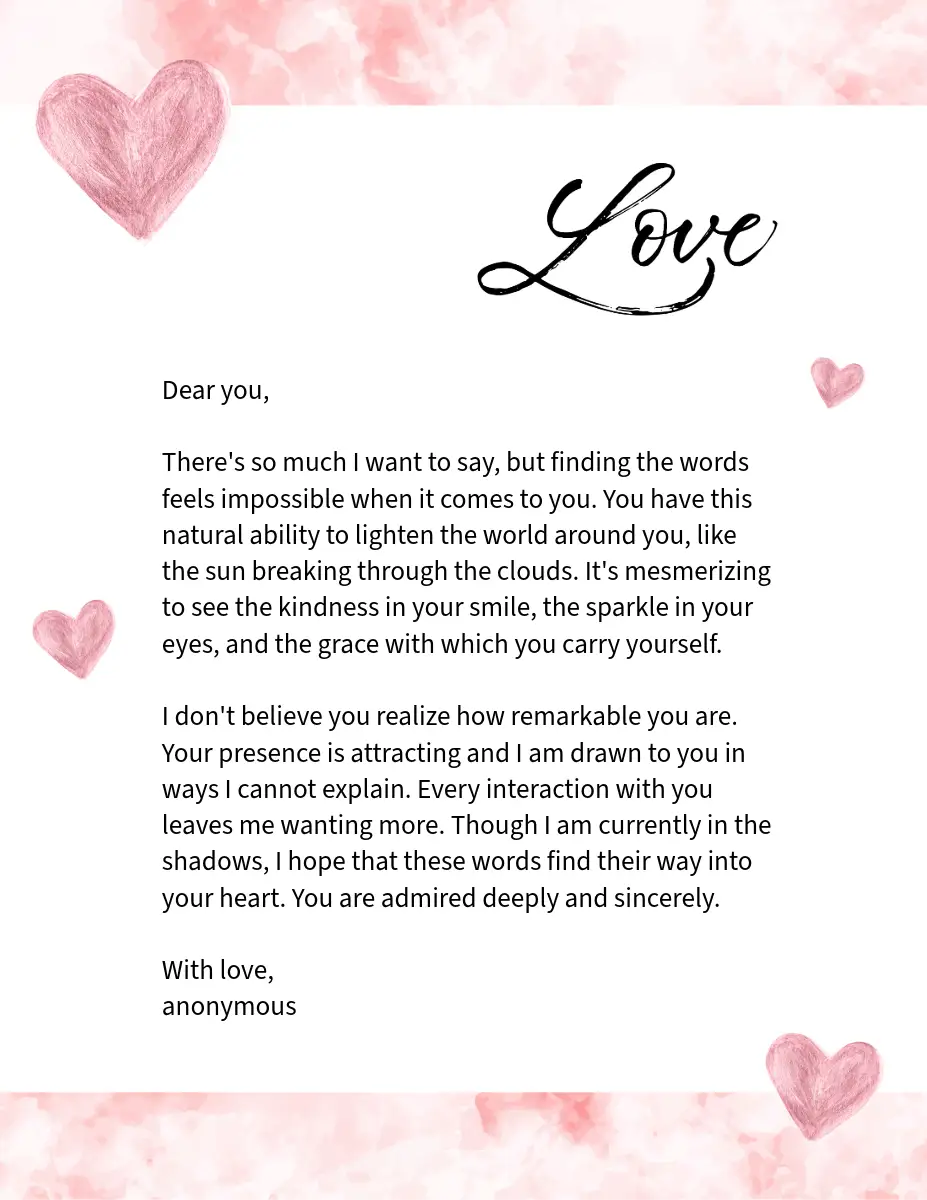 Love
Dear you,
There's so much I want to say, but finding the words
feels impossible when it comes to you. You have this
natural ability to lighten the world around you, like
the sun breaking through the clouds. It's mesmerizing
to see the kindness in your smile, the sparkle in your
eyes, and the grace with which you carry yourself.
I don't believe you realize how remarkable you are.
Your presence is attracting and I am drawn to you in
ways I cannot explain. Every interaction with you
leaves me wanting more. Though I am currently in the
shadows, I hope that these words find their way into
your heart. You are admired deeply and sincerely.
With love,
anonymous